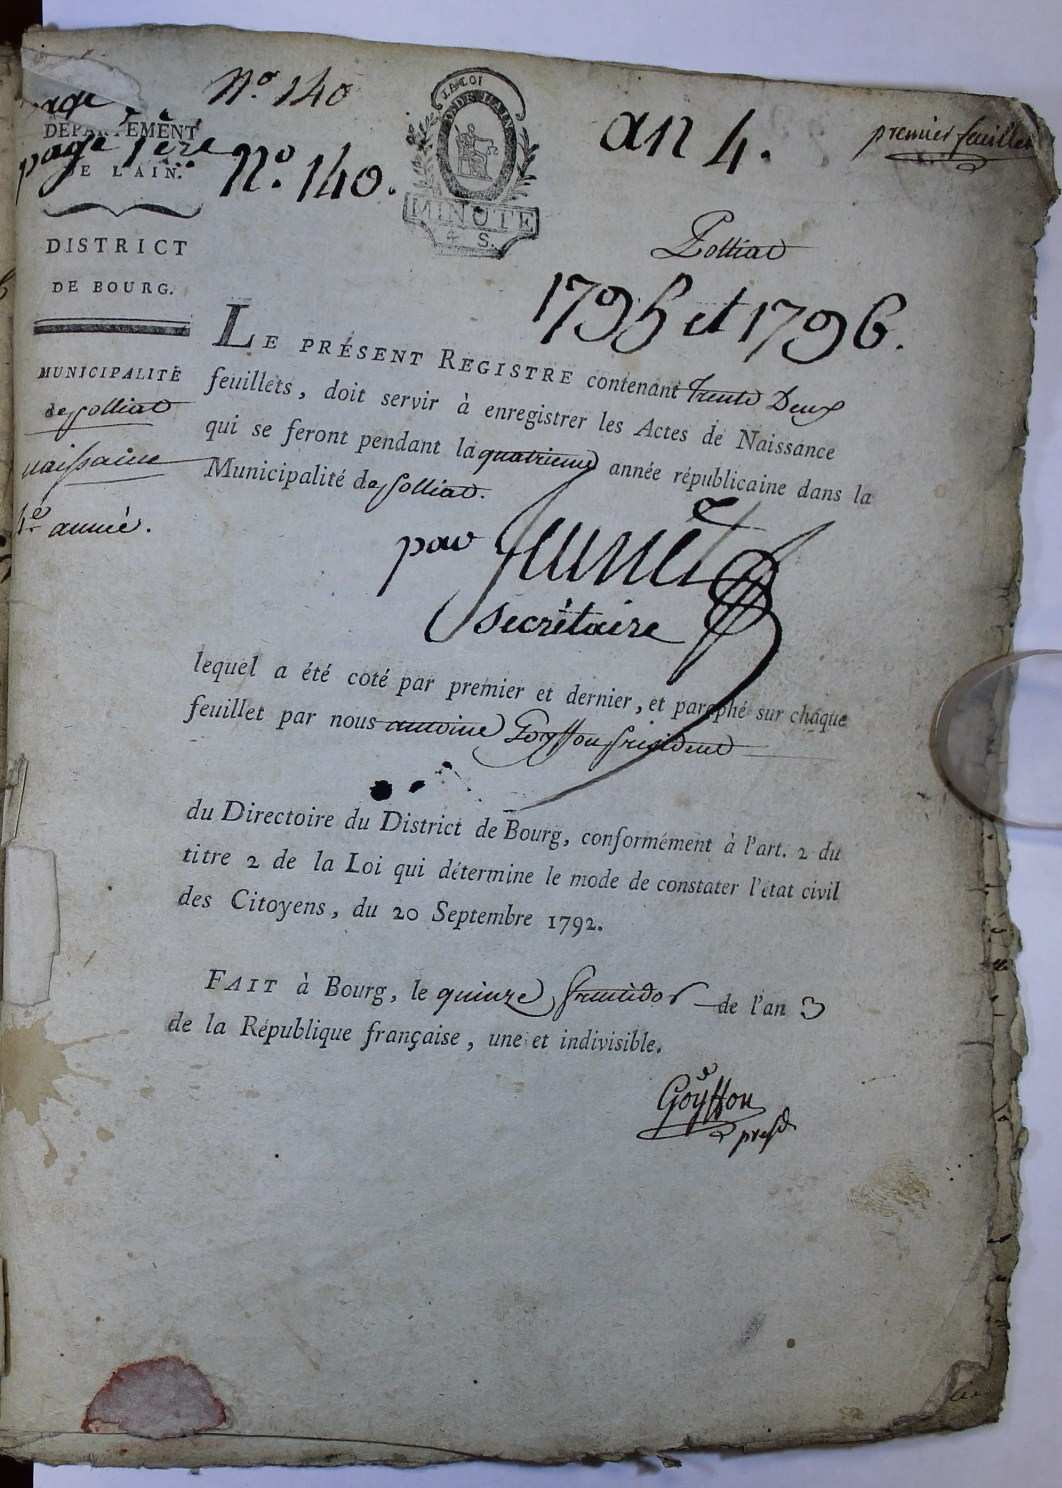 page
N° 140
LA LOI
an 4.
premier feuillet
DÉPARTEMENT
page 1ère
N°. 140.
DE L'AIN.
MINUTE
4 S.
DISTRICT
DE BOURG.
Polliat
1795 et 1796.
MUNICIPALITÉ
de polliat
naissance
4e année.
LE PRÉSENT REGISTRE contenant trente Deux
feuillets, doit servir à enregistrer les Actes de Naissance
qui se feront pendant la quatrieme année républicaine dans la
Municipalité de polliat.
par
secrétaire
lequel a été coté par premier et dernier, et paraphé sur chaque
feuillet par nous antoine Goyffon président
du Directoire du District de Bourg, conformément à l'art. 2 du
titre 2 de la Loi qui détermine le mode de constater l'état civil
des Citoyens, du 20 Septembre 1792.
FAIT à Bourg, le quinze fructidor de l'an 3
de la République française, une et indivisible.
Goyffon
presd